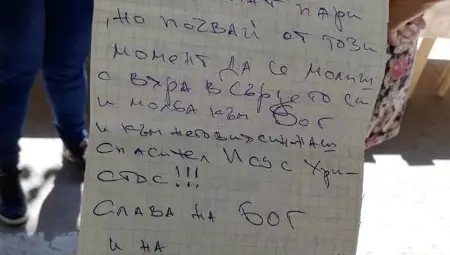 ПАРИ
, НО ПОЧВАЙ ОТ ТОЗИ
МОМЕНТ ДА СЕ МОЛИШ
С ВЯРА В СЪРЦЕТО СИ
И МОЛБА КЪМ БОГ
И КЪМ НЕГОВИЯ СИН НАШ
СПАСИТЕЛ ИСУС ХРИ-
СТОС!!!
СЛАВА НА БОГ
И НА